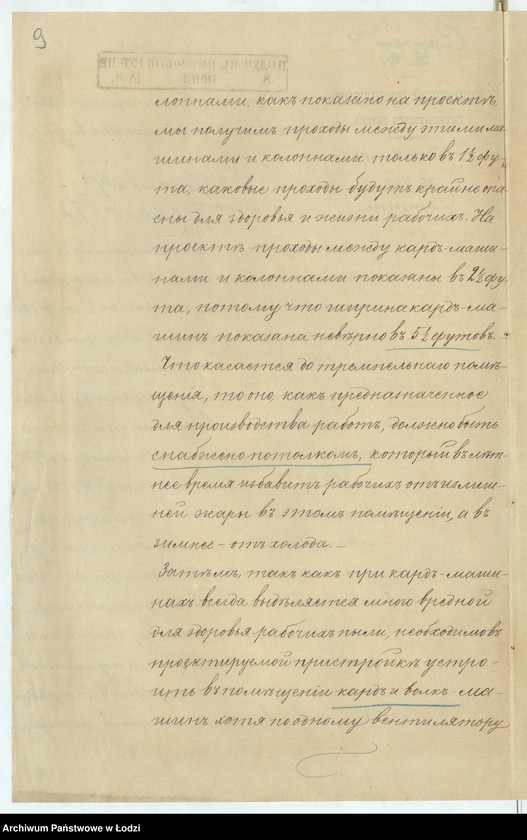 9
лоннами, какъ показано на проектѣ,
мы получимъ проходы между этими ма-
шинами и колоннами только въ 1½ фу-
та, каковые проходы будутъ крайне опа-
сны для здоровья и жизни рабочихъ. На
проектѣ проходы между кардъ-маши-
нами и колоннами показаны въ 2½ фу-
та, потому что ширина кардъ-ма-
шинъ показана невѣрно въ 5½ футовъ. –
Что касается до трепельнаго помѣ-
щенія, то оно, какъ предназначенное
для производства работъ, должно быть
снабжено потолкомъ, который въ лѣт-
нее время избавитъ рабочихъ отъ излиш-
ней жары въ этомъ помѣщеніи, а въ
зимнее – отъ холода. –
Затѣмъ, такъ какъ при кардъ-маши-
нахъ всегда выдѣляется много вредной
для здоровья рабочихъ пыли, необходимо въ
проектируемой пристройкѣ устро-
ить въ помѣщеніи кардъ и волкъ-ма-
шинъ хотя по одному вентилятору
Archiwum Państwowe w Łodzi